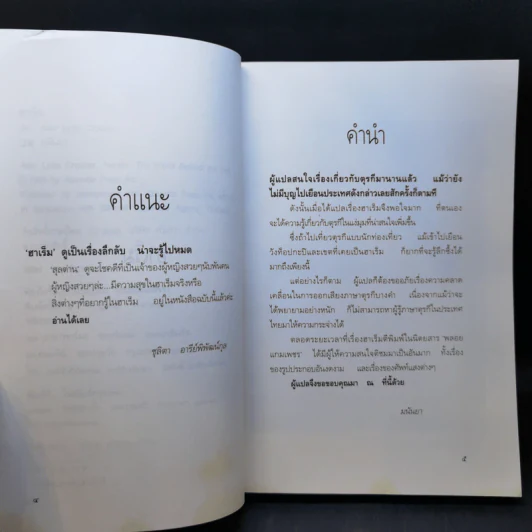 คำแนะ
'ฮาเร็ม' ดูเป็นเรื่องลึกลับ น่าจะรู้ไปหมด
'สุลต่าน' ดูจะโชคดีที่เป็นเจ้าของผู้หญิงสวยๆนับพันคน
ผู้หญิงสวยๆล่ะ...มีความสุขในฮาเร็มจริงหรือ
สิ่งต่างๆที่อยากรู้ในฮาเร็ม อยู่ในหนังสือฉบับนี้แล้วค่ะ
อ่านได้เลย
ชุลิตา อารีย์พิพัฒน์กุล
๔
คำนำ
ผู้แปลสนใจเรื่องเกี่ยวกับตุรกีมานานแล้ว แม้ว่ายัง
ไม่มีบุญไปเยือนประเทศดังกล่าวเลยสักครั้งก็ตามที
ดังนั้นเมื่อได้แปลเรื่องฮาเร็มจึงพอใจมาก ที่ตนเอง
จะได้ความรู้เกี่ยวกับตุรกีในแง่มุมที่น่าสนใจเพิ่มขึ้น
ซึ่งถ้าไปเที่ยวตุรกีแบบนักท่องเที่ยว แม้เข้าไปเยือน
วังท็อปกะปิและเขตที่เคยเป็นฮาเร็ม ก็ยากที่จะรู้ลึกซึ้งได้
มากถึงเพียงนี้
แต่อย่างไรก็ตาม ผู้แปลก็ต้องขออภัยเรื่องความคลาด
เคลื่อนในการออกเสียงภาษาตุรกีบางคำ เนื่องจากแม้ว่าจะ
ได้พยายามอย่างหนัก ก็ไม่สามารถหาผู้รู้ภาษาตุรกีในประเทศ
ไทยมาให้ความกระจ่างได้
ตลอดระยะเวลาที่เรื่องฮาเร็มตีพิมพ์ในนิตยสาร 'พลอย
แกมเพชร' ได้มีผู้ให้ความสนใจติชมมาเป็นอันมาก ทั้งเรื่อง
ของรูปประกอบอันงดงาม และเรื่องของศัพท์แสงต่างๆ
ผู้แปลจึงขอขอบคุณมา ณ ที่นี้ด้วย
มนันยา
๕